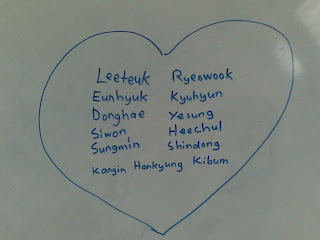 Leeteuk Ryeowook
Eunhyuk Kyuhyun
Donghae Yesung
Siwon Heechul
Sungmin Shindong
Kangin Hankyung Kibum